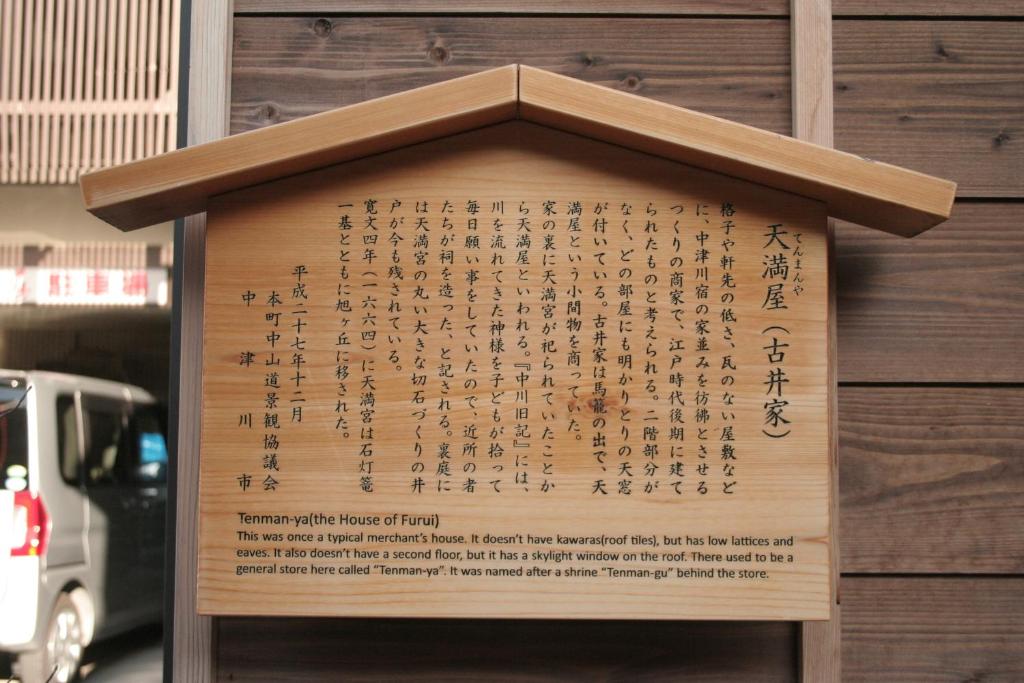 てんまんや
天満屋（古井家）
格子や軒先の低さ、瓦のない屋敷など
に、中津川宿の家並みを彷彿とさせる
つくりの商家で、江戸時代後期に建て
られたものと考えられる。二階部分が
なく、どの部屋にも明かりとりの天窓
が付いている。古井家は馬籠の出で、天
満屋という小間物を商っていた。
家の裏に天満宮が祀られていたことか
ら天満屋といわれる。『中川旧記』には、
川を流れてきた神様を子どもが拾って
毎日願い事をしていたので、近所の者
たちが祠を造った、と記される。裏庭に
は天満宮の丸い大きな切石づくりの井
戸が今も残されている。
寛文四年（一六六四）に天満宮は石灯篭
一基とともに旭ヶ丘に移された。
平成二十七年十二月
本町中山道景観協議会
中津川市
Tenman-ya(the House of Furui)
This was once a typical merchant's house. It doesn't have kawaras(roof tiles), but has low lattices and
eaves. It also doesn't have a second floor, but it has a skylight window on the roof. There used to be a
general store here called "Tenman-ya". It was named after a shrine "Tenman-gu" behind the store.